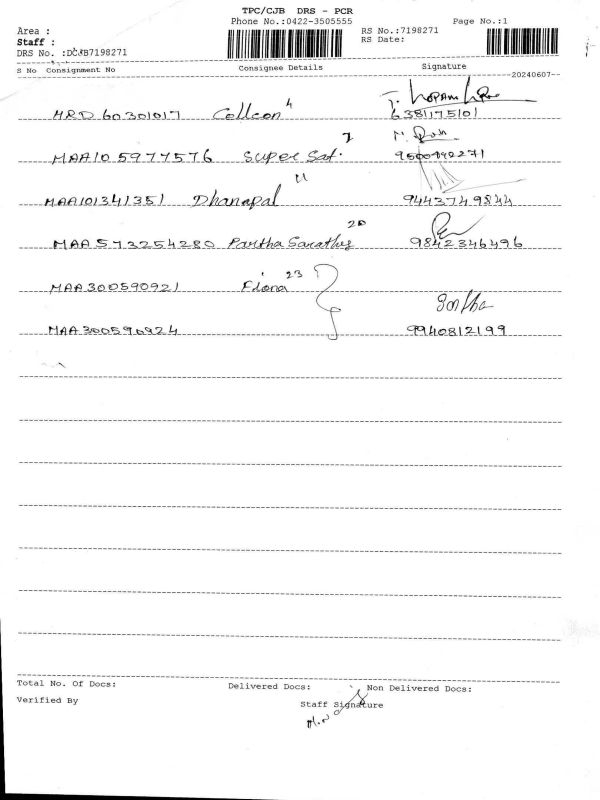 TPC/CJB DRS - PCR
Phone No.:0422-3505555 Page No.:1
Area : RS No.:7198271
Staff : RS Date:
DRS No. :DCJB7198271
S No Consignment No Consignee Details Signature
20240607
MRD 60301017 Cellcon 4
6381175101
MAA105977576 Super Sat. 7
9500992271
MAA101341351 Dhanapal 11 9443749844
MAA573254280 Partha Sarathy 20 9842346496
MAA300590921 Fiona 23
MAA300590924 9940812199
Total No. Of Docs: Delivered Docs: Non Delivered Docs:
Verified By Staff Signature